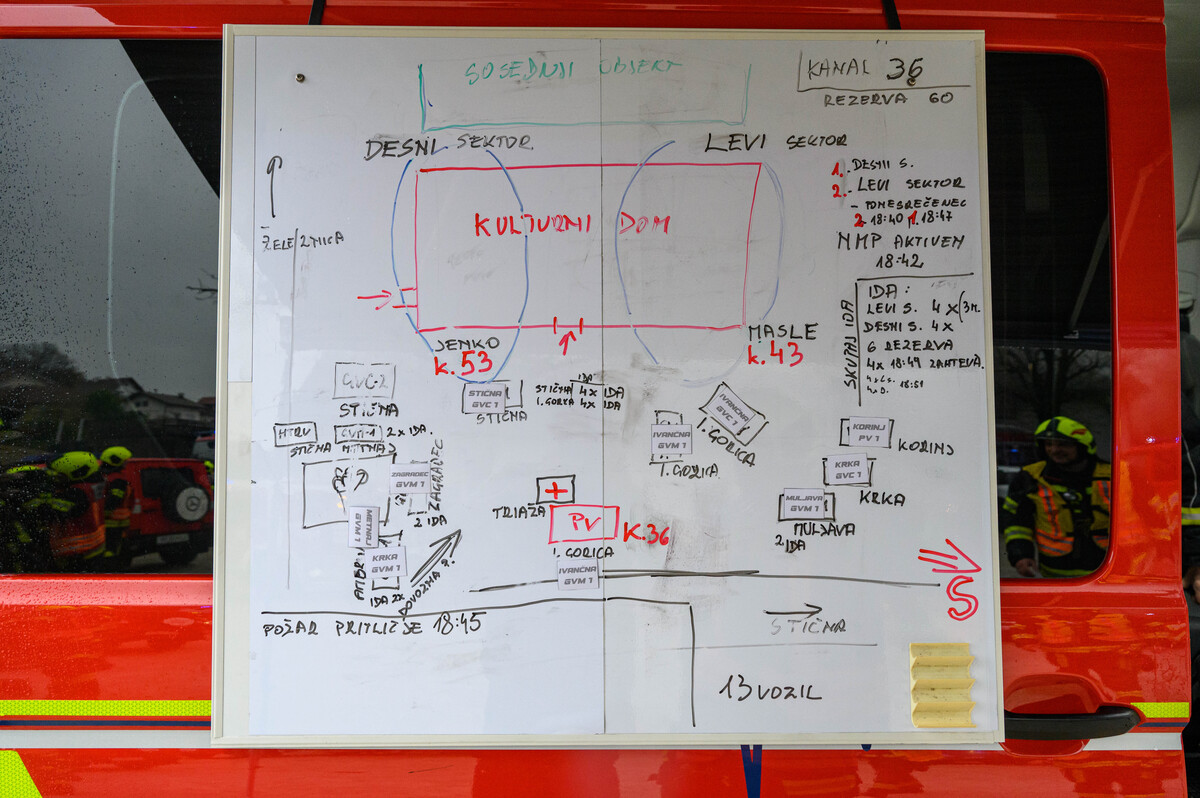 SOSEDNJI OBJEKT
KANAL 36
REZERVA 60
DESNI SEKTOR
LEVI SEKTOR
1. DESNI S.
2. LEVI SEKTOR
- PONESREČENEC
2. 18:40 1. 18:47
NMP AKTIVEN
18:42
ŽELEZNICA
KULTURNI DOM
SKUPAJ IDA
IDA:
LEVI S. 4 x
DESNI S. 4 x
6 REZERVA
4 x 18:49 ZAHTEVA
JENKO
K.53
MASLE
K.43
GVC-2
STIČNA
STIČNA
GVC 1
STIČNA
IDA
STIČNA 4 x IDA
I. GORICA 4 x IDA
IVANČNA
GVC 1
I. GORICA
IVANČNA
GVM 1
I. GORICA
KORINJ
PV 1
KORINJ
KRKA
GVC 1
KRKA
MULJAVA
GVM 1
MULJAVA
2 IDA
HTRV
STIČNA
GVM-1
2 x IDA.
ZAGRADEC
GVM 1
ZAGRADEC
2 IDA
METNAJ
GVM 1
KRKA
GVM 1
IDA 2x
DOVOZNA ?!
TRIAŽA
PV
K.36
I. GORICA
IVANČNA
GVM 1
S
POŽAR PRITLIČJE 18:45
STIČNA
13 VOZIL